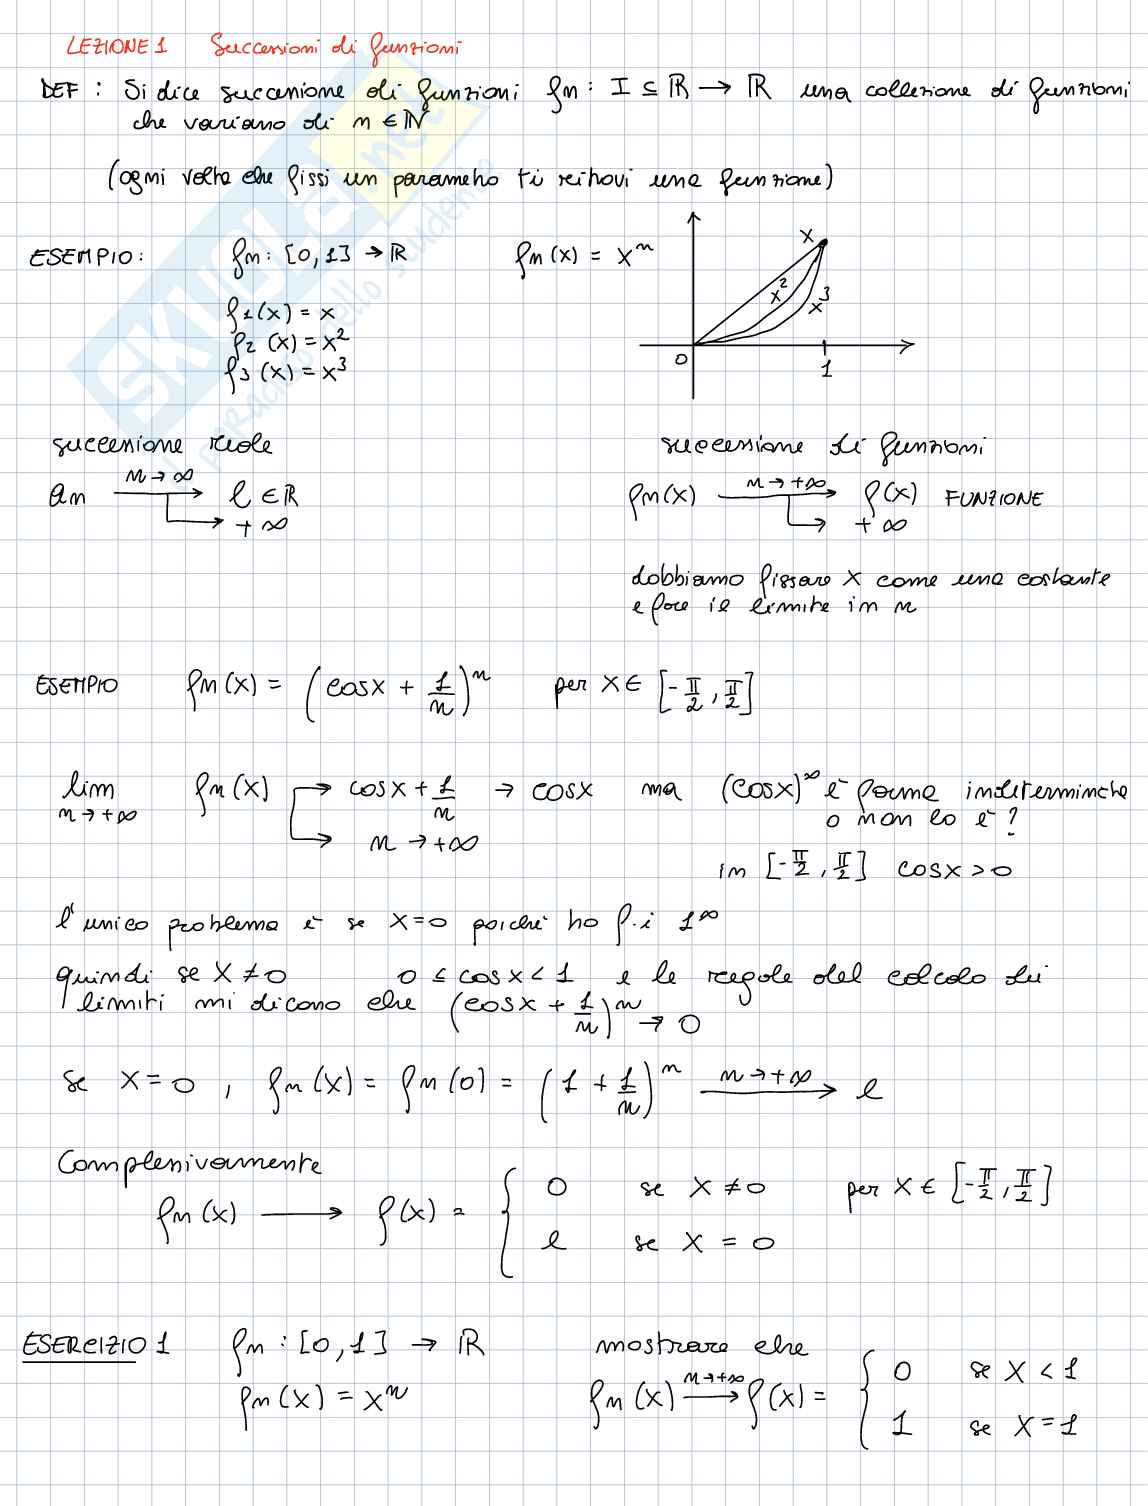 LEZIONE 1 Successioni di funzioni
DEF : Si dice successione di funzioni fn : I ⊆ ℝ → ℝ una collezione di funzioni
che variano di n ∈ ℕ
(ogni volta che fissi un parametro ti ritrovi una funzione)
ESEMPIO: fn : [0,1] → ℝ fn(x) = x^n
f1(x) = x
f2(x) = x^2
f3(x) = x^3
x
x^2
x^3
0
1
successione reale
an n→∞ l ∈ ℝ
+∞
successione di funzioni
fn(x) n→+∞ f(x) FUNZIONE
+∞
dobbiamo fissare x come una costante
e fare il limite in n
ESEMPIO fn(x) = (cosx + 1/n)^n per x ∈ [-π/2, π/2]
lim n→+∞ fn(x) → cosx + 1/n → cosx ma (cosx)^∞ è forma indeterminata
→ n → +∞ o non lo è?
in [-π/2, π/2] cosx > 0
l'unico problema è se x=0 poiché ho f.i 1^∞
quindi se x ≠ 0 0 ≤ cosx < 1 e le regole del calcolo dei
limiti mi dicono che (cosx + 1/n)^n → 0
se x = 0 , fn(x) = fn(0) = (1 + 1/n)^n n→+∞ → e
Complessivamente
fn(x) → f(x) = { 0 se x ≠ 0 per x ∈ [-π/2, π/2]
e se x = 0
ESERCIZIO 1 fn : [0,1] → ℝ mostrare che
fn(x) = x^n fn(x) n→+∞ → f(x) = { 0 se x < 1
1 se x = 1
SKUOLA.net
il paradiso dello studente